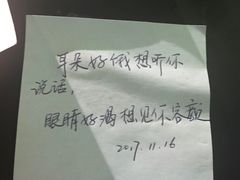 耳朵好饿想听你
说话,
眼睛好渴想见你容颜
2017.11.16